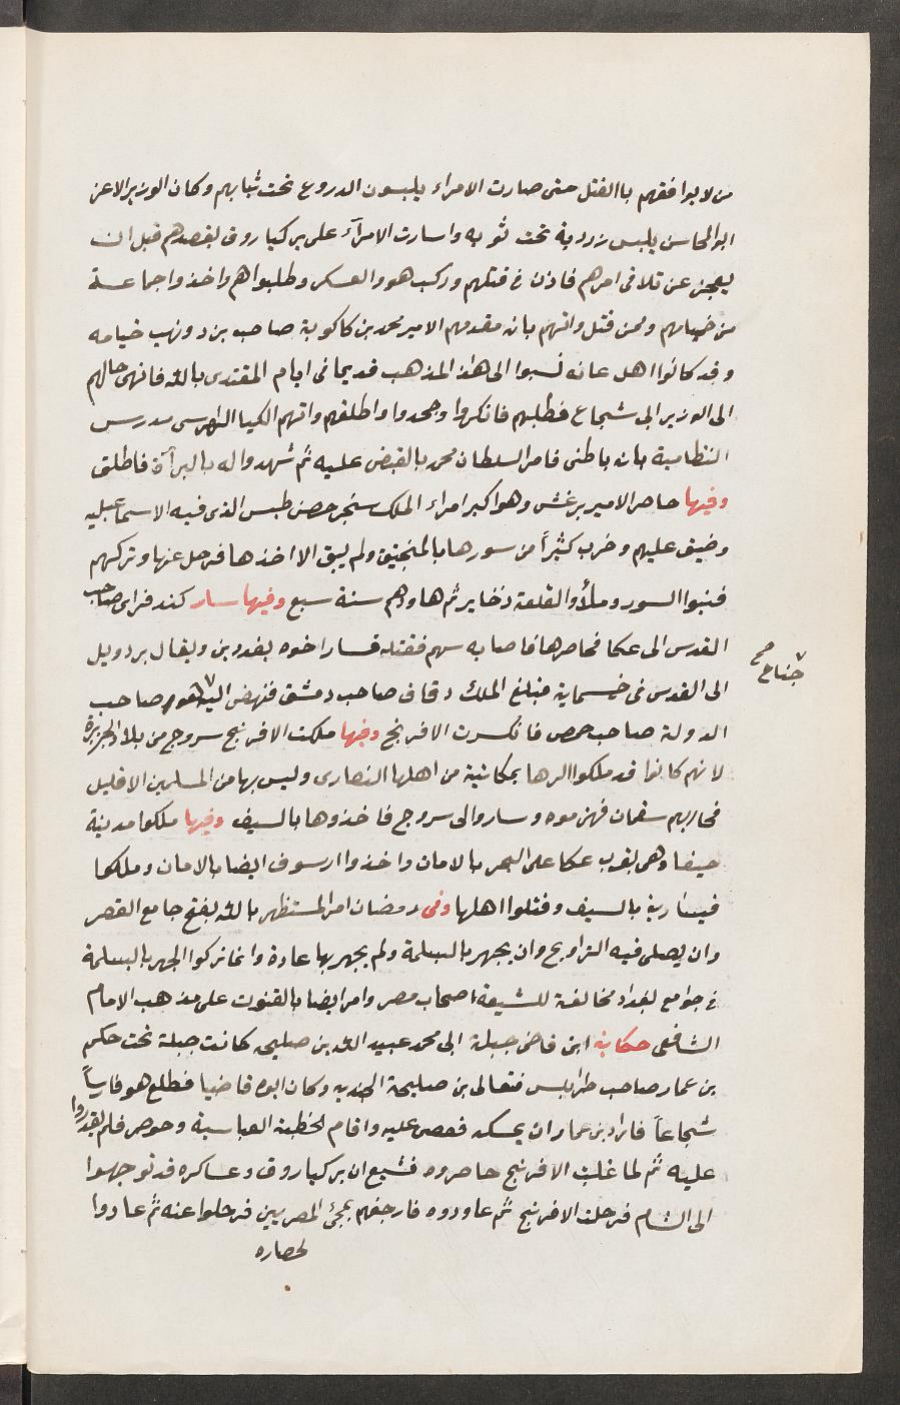 من لا يوافقهم باالقتل حتى صارت الامراء يلبسون الدروع تحت ثيابهم وكان الوزير الاعز
ابو المحاسن يلبس زردية تحت ثوبه واسارت الامرآء على بركياروق بقصدهم قبل ان
يعجز عن تلافى امرهم فاذن فى قتلهم وركب هو والعسكر وطلبواهم واخذوا جماعة
من خيامهم وممن قتل واتهم بانه مقدمهم الامير محمد بن كاكوية صاحب يزد ونهب خيامه
وقد كانوا اهل عانه نسبوا الى هذا المذهب قديما فى ايام المقتدى بالله فانهى حالهم
الى الوزير ابى شجاع فطلبهم فانكروا وجحدوا واطلقهم واتهم الكيا الهراسى مدرس
النظامية بانه باطنى فامر السلطان محمد بالقبض عليه ثم شهدوا له بالبرآة فاطلق
وفيها حاصر الامير برغش وهو اكبر امراء الملك سنجر حصن طبس الذى فيه الاسماعيليه
وضيق عليهم وخرب كثيراً من سورها بالمنجنيق ولم يبق الا اخذها فرحل عنها وتركهم
فبنوا السور وملأوا القلعة ذخاير ثم هاودهم سنة سبع وفيها سار كندفرى صاحب
القدس الى عكا فحاصرها فاصابه سهم فقتله فسار اخوه بغدوين ويقال بردويل
الى القدس فى خمسماية فبلغ الملك دقاق صاحب دمشق فنهض اليه هو صاحب
جناح صح
الدولة صاحب حمص فانكسرت الافرنج وفيها ملكت الافرنج سروج من بلاد الجزيرة
لانهم كانوا قد ملكوا الرها بمكاتبة من اهلها النصارى وليس بها من المسلمين الا قليل
فحاربهم سقمان فهزموه وساروا الى سروج فاخذوها بالسيف وفيها ملكوا مدينة
حيفا وهى بقرب عكا على البحر بالامان واخذوا ارسوف ايضا بالامان وملكوا
قيسارية بالسيف وقتلوا اهلها وفى رمضان امر المستظهر بالله بفتح جامع القصر
وان يصلى فيه التراويح وان يجهر بالبسملة ولم يجهر بها عادة وانما تركوا الجهر بالبسملة
فى جوامع بغداد مخالفة للشيعة اصحاب مصر وامر ايضا بالقنوت على مذهب الامام
الشافعى حكاية ابن قاضى جبلة ابى محمد عبيد الله بن صليحه كانت جبلة تحت حكم
بن عمار صاحب طرابلس فتعالى بن صليحة الجنديه وكان ابوه قاضيا فطلع هو فارساً
شجاعاً فاراد بن عمار ان يمسكه فعصى عليه واقام الخطبة العباسية وحوصر فلم يقدروا
عليه ثم لما غلبت الافرنج حاصروه فشيع ان بركياروق وعساكره قد توجهوا
الى الشام فرحلت الافرنج ثم عاودوه فارجفهم بمجئ المصريين فرحلوا عنه ثم عادوا
لحصاره